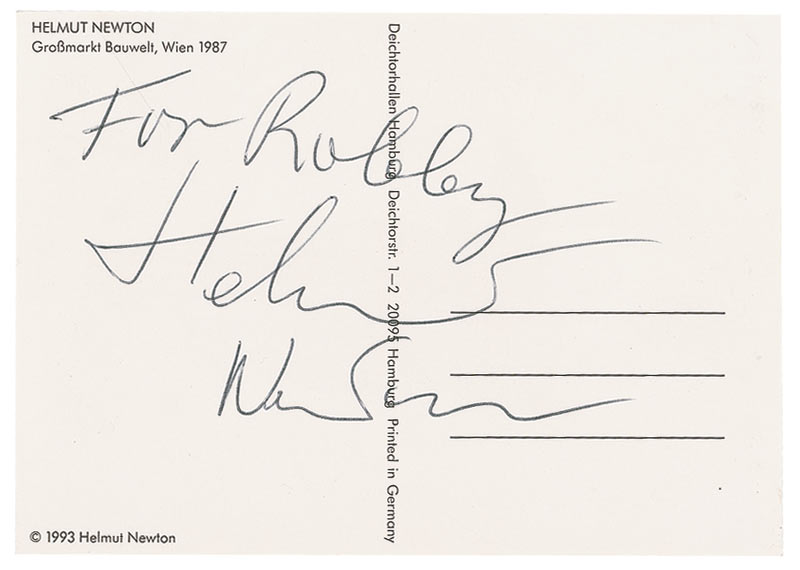 HELMUT NEWTON
Großmarkt Bauwelt, Wien 1987
For Robbey
Helmut
Newton
Deichtorhallen Hamburg Deichtorstr. 1–2 20095 Hamburg Printed in Germany
© 1993 Helmut Newton